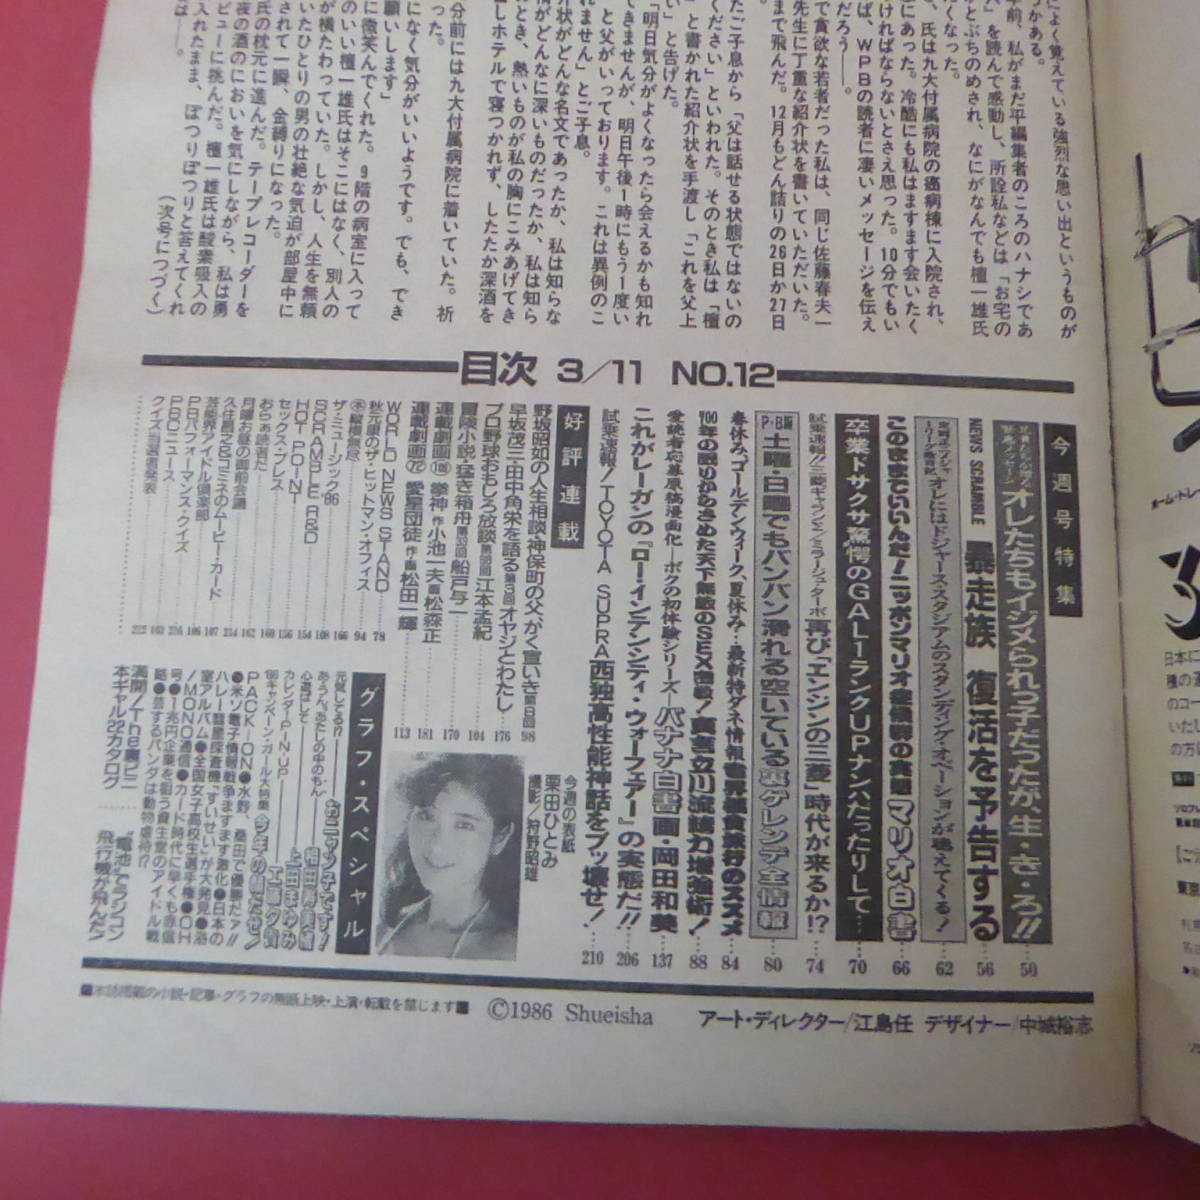 によく覚えている強烈な思い出というものが
つかある。
年前、私がまだ平編集者のころのハナシであ
を読んで感動し、所詮私などは「お宅の
とぶちのめされ、なにがなんでも檀一雄氏
たくなった。
、氏は九大付属病院の癌病棟に入院され、
にあった。冷酷にも私はますます会いたく
ければならないとさえ思った。10分でもい
ば、WPBの読者に凄いメッセージを伝え
だろう——。
で貪欲な若者だった私は、同じ佐藤春夫一
先生に丁重な紹介状を書いていただいた。
まで飛んだ。12月もどん詰りの26日か27日
たご子息から「父は話せる状態ではないの
ください」といわれた。そのとき私は「檀
」と書かれた紹介状を手渡し「これを父上
い」と告げた。
「明日気分がよくなったら会えるかも知れ
できませんが、明日午後1時にもう1度い
」と父がいっております。これは異例のこ
れません」とご子息。
介状がどんな名文であったか、私は知らな
情がどんなに深いものだったか、私は知ら
とき、熱いものが私の胸にこみあげてき
しホテルで寝つかれず、したたか深酒を
分前には九大付属病院に着いていた。祈
った。
になく気分がいいようです。でも、でき
願いします」
に微笑んでくれた。9階の病室に入って
のいい檀一雄氏はそこにはなく、別人の
が横たわっていた。しかし、人生を無頼
いたひとりの男の壮絶な気迫が部屋中に
されて一瞬、金縛りになった。
氏の枕元に進んだ。テープレコーダーを
夜の酒のにおいを気にしながら、私は勇
ビューに挑んだ。檀一雄氏は酸素吸入の
入れたまま、ぽつりぽつりと答えてくれ
(次号につづく)
目次 3/11 NO.12
今週号特集
オレたちもイジメられっ子だったが、生・き・ろ!! 50
NEWS SCRAMBLE 暴走族 復活を予告する 56
オレにはドジャース・スタジアムのスタンディング・オベーションが聴えてくる! 62
このままでいいんだ!ニッポンマリオ症候群の実態 マリオ白書 66
卒業ドサクサ驚愕のGALランクUPナンパだったりして… 70
試乗速報!!三菱ギャランΣ/エテルナΣターボ 再び「エンジンの三菱」時代が来るか!? 74
土曜・日曜でもバンバン滑れる空いている裏ゲレンデ全情報 80
春休み、ゴールデンウィーク、夏休み…最新特ダネ情報 世界編貧乏旅行のススメ 84
700年の眠りからさめた天下無敵のSEX密教! 真言立川流精力増強術! 88
愛読者応募原稿漫画化—ボクの初体験シリーズ—バナナ白書 画・岡田和美 137
これがレーガンの『ロー・インテンシティ・ウォーフェアー』の実態だ!! 206
試乗速報! TOYOTA SUPRA 西独高性能神話をブッ壊せ! 210
好評連載
野坂昭如の人生相談・神保町の父がく言いき 98
早坂茂三田中角栄を語る 第3回 オヤジとわたし 176
プロ野球おもしろ放談 江本孟紀 104
冒険小説・猛き箱舟 船戸与一 170
連載劇画 拳神 作 小池一夫 画 松森正 181
連載劇画 愛星団徒 作・画 松田一輝 113
WORLD NEWS STAND 78
秋元康のザ・ヒットマン・オフィス 94
ザ・ミュージック'86 166
SCRAMBLE R&D 108
HOT POINT 154
セックス・プレス 156
おらぁ読者だ 160
月曜お昼の御前会議 162
久住昌之&コミネのムービー・カード 214
芸能界アイドル倶楽部 107
PRパフォーマンス・クイズ 106
PBCニュース 216
クイズ当選者発表 103
今週の表紙
栗田ひとみ
撮影/狩野昭雄
グラフ・スペシャル
元気してる!? おニャン子です!
カレンダーPIN-UP
'86キャンペーン・ガール大特集 今年の顔だぜ!
PACK-ION●水野、桑田で優勝だァ!!
●米ソ電子情報戦争ますます激化●日本の
ハレー彗星探査機「すいせい」が大発見●浴
室アルバム●全国女子高校生選手権●OH
!MONO通信●カード時代に早くも赤信
号●1兆円企業を狙う資生堂のアイドル戦
略●芸するパンダは動物虐待!?
満開!The裏ビニ
本ギャル22カタログ
"電池"ラジコン
飛行機が飛んだ!
■本誌掲載の小説・記事・グラフの無断上映・上演・転載を禁じます■
©1986 Shueisha
アート・ディレクター/江島任 デザイナー/中城裕志
ホーム・トレー
日本に
種の運
のコー
いたし
の方や
東京